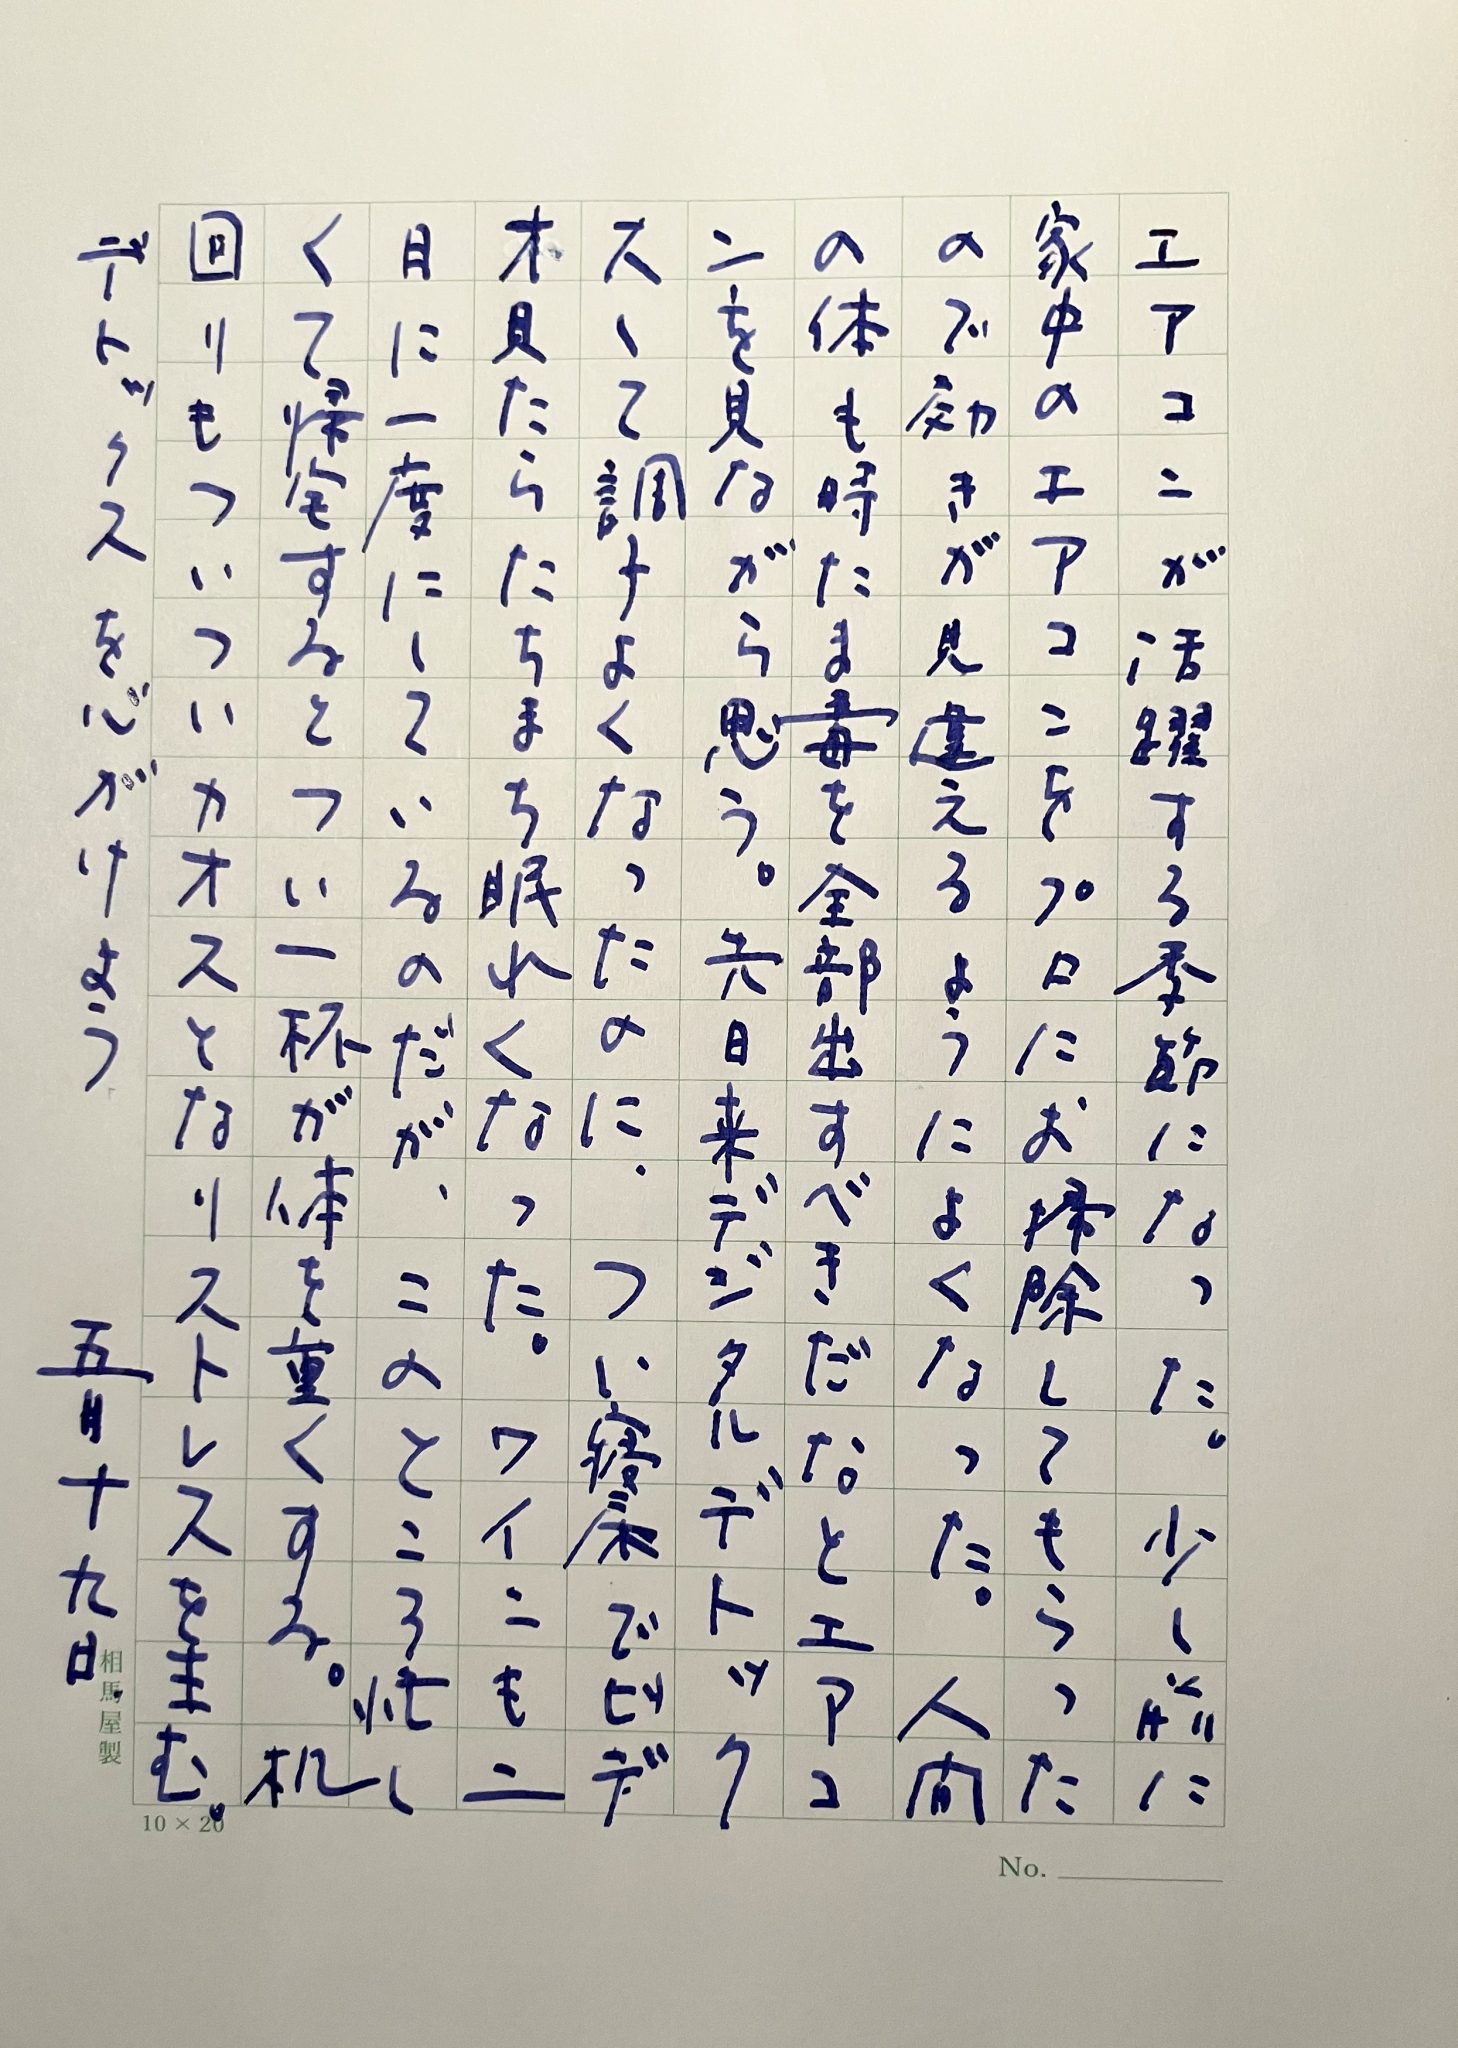 エアコンが活躍する季節になった。少し前に
家中のエアコンをプロにお掃除してもらった
ので効きが見違えるようによくなった。人間
の体も時たま毒を全部出すべきだなとエアコ
ンを見ながら思う。先日来デジタルデトック
スして調子よくなったのに、つい寝床でビデ
オ見たらたちまち眠れくなった。ワインも二
日に一度にしているのだが、このところ忙し
くて帰宅するとつい一杯が体を重くする。机
回りもついついカオスとなりストレスを生む。
デトックスを心がけよう 五月十九日
相馬屋製
10 × 20
No.